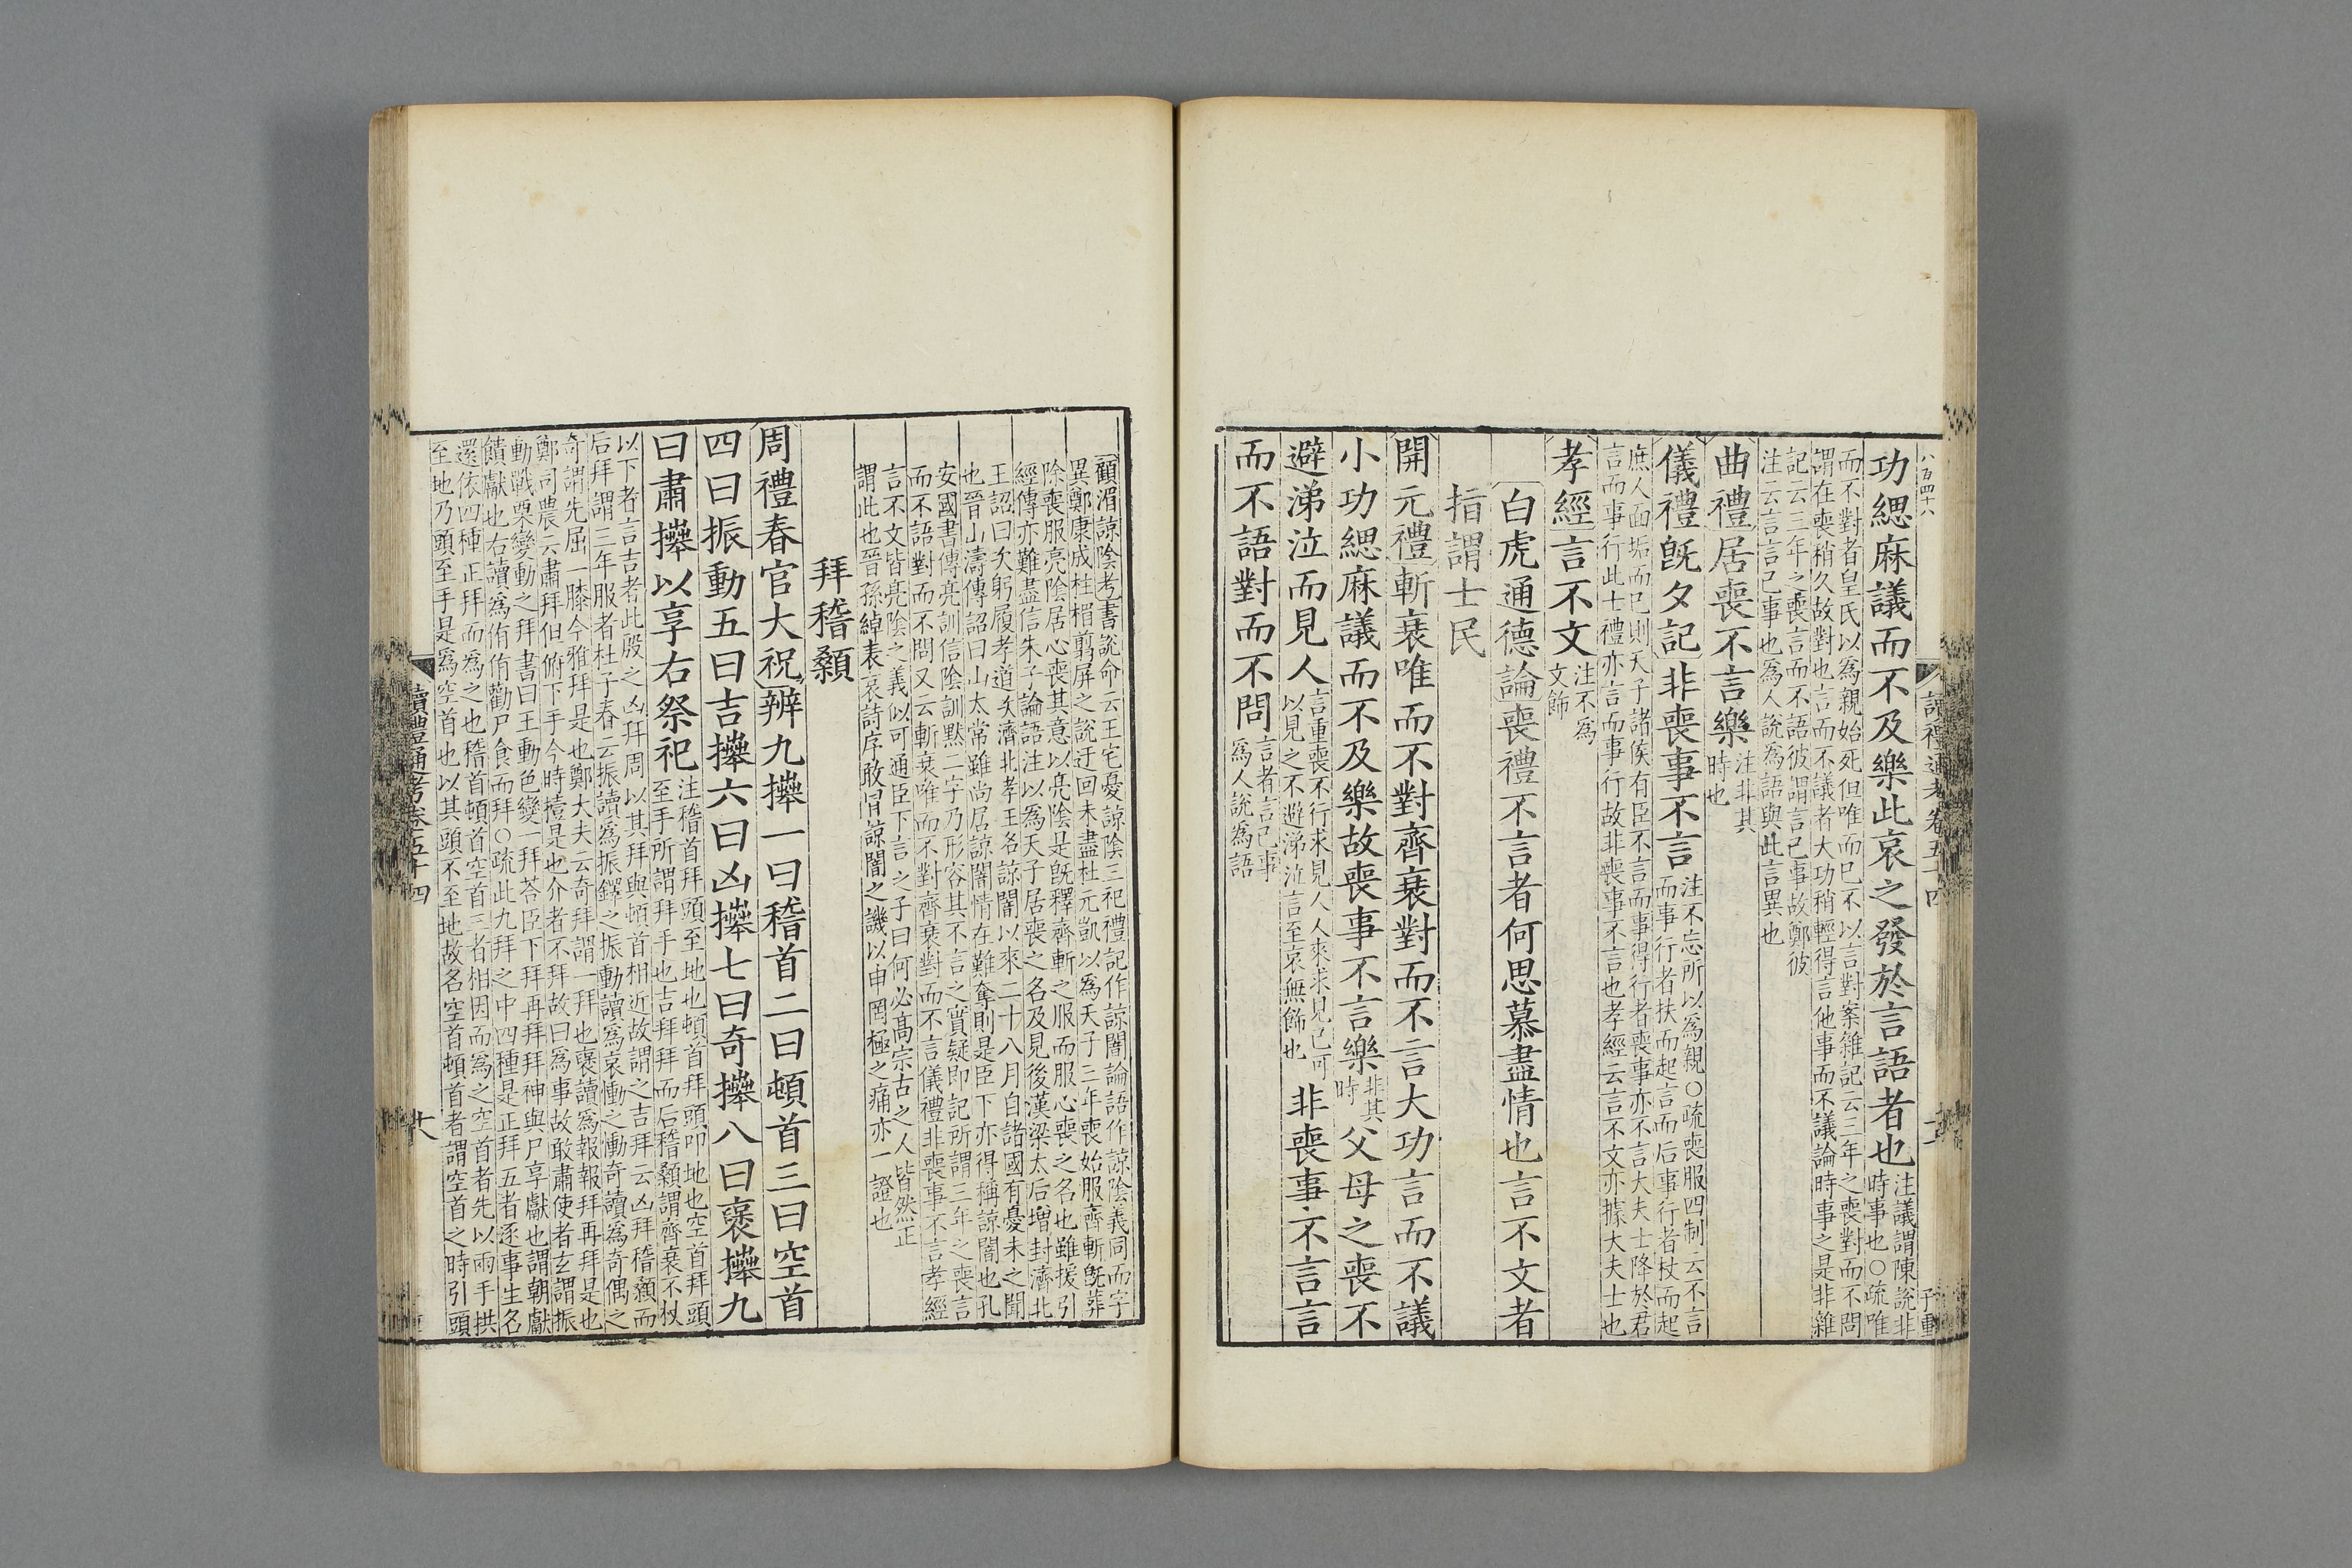 八百四十八
讀禮通考卷五十四
功緦麻議而不及樂此哀之發於言語者也注議謂陳說非時事也○疏唯
而不對者皇氏以爲親始死但唯而已不以言對案雜記云三年之喪對而不問
謂在喪稍久故對也言而不議者大功稍輕得言他事而不議論時事之是非雜
記云三年之喪言而不語彼謂言已事故鄭彼
注云言言己事也爲人說爲語與此言異也
曲禮居喪不言樂注非其時也
儀禮旣夕記非喪事不言注不忘所以爲親○疏喪服四制云不言而事行者扶而起言而后事行者杖而起
庶人面垢而已則天子諸侯有臣不言而事得行者喪事亦不言大夫士降於君
言而事行此士禮亦言而事行故非喪事不言也孝經云言不文亦據大夫士也
孝經言不文注不爲文飾
白虎通德論喪禮不言者何思慕盡情也言不文者
指謂士民
開元禮斬衰唯而不對齊衰對而不言大功言而不議
小功緦麻議而不及樂故喪事不言樂非其時父母之喪不
避涕泣而見人言重喪不行求見人人來求見已可以見之不避涕泣言至哀無飾也非喪事不言言
而不語對而不問言者言已事爲人說爲語
顧湄諒陰考書說命云王宅憂諒陰三祀禮記作諒闇論語作諒陰義同而字
異鄭康成柱楣翦屏之說迂回未盡杜元凱以爲天子三年喪始服齊斬旣葬
除喪服亮陰居心喪其意以亮陰是旣釋齊斬之服而服心喪之名也雖援引
經傳亦難盡信朱子論語注以爲天子居喪之名及見後漢梁太后增封濟北
王詔曰次躬履孝道次濟北孝王名諒闇以來二十八月自諸國有憂未之聞
也晉山濤傳詔曰山太常雖尚居諒闇情在難奪則是臣下亦得稱諒闇也孔
安國書傳亮訓信陰訓默二字乃形容其不言之實疑即記所謂三年之喪言
而不語對而不問又云斬衰唯而不對齊衰對而不言儀禮非喪事不言孝經
言不文皆亮陰之義似可通臣下言之子曰何必髙宗古之人皆然正
謂此也晉孫綽表哀詩序敢冒諒闇之譏以申罔極之痛亦一證也
拜稽顙
周禮春官大祝辨九㩻一曰稽首二曰頓首三曰空首
四曰振動五曰吉㩻六曰凶㩻七曰奇㩻八曰褒㩻九
曰肅㩻以享右祭祀注稽首拜頭至地也頓首拜頭叩地也空首拜頭至手所謂拜手也吉拜拜而后稽顙謂齊衰不杖
以下者言吉者此殷之凶拜周以其拜與頓首相近故謂之吉拜云凶拜稽顙而
后拜謂三年服者杜子春云振讀爲振鐸之振動讀爲哀慟之慟奇讀爲奇偶之
奇謂先屈一膝今雅拜是也鄭大夫云奇拜謂一拜也褒讀爲報報拜再拜是也
鄭司農云肅拜但俯下手今時撎是也介者不拜故曰爲事故敢肅使者玄謂振
動戰栗變動之拜書曰王動色變一拜荅臣下拜再拜拜神與尸享獻也謂朝獻
饋獻也右讀爲侑侑勸尸食而拜○疏此九拜之中四種是正拜五者逐事生名
還依四種正拜而爲之也稽首頓首空首三者相因而爲之空首者先以兩手拱
至地乃頭至手是爲空首也以其頭不至地故名空首頓首者謂空首之時引頭
讀禮通考卷五十四
廿八